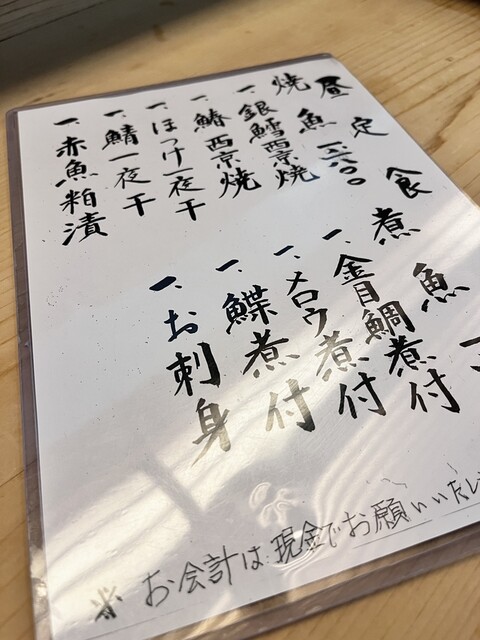 昼定食
焼魚 一二〇〇
一、銀鱈西京焼
一、鰆西京焼
一、ほっけ一夜干
一、鯖一夜干
一、赤魚粕漬
煮魚
一、金目鯛煮付
一、メロウ煮付
一、鰈煮付
一、お刺身
※お会計は現金でお願いいたし